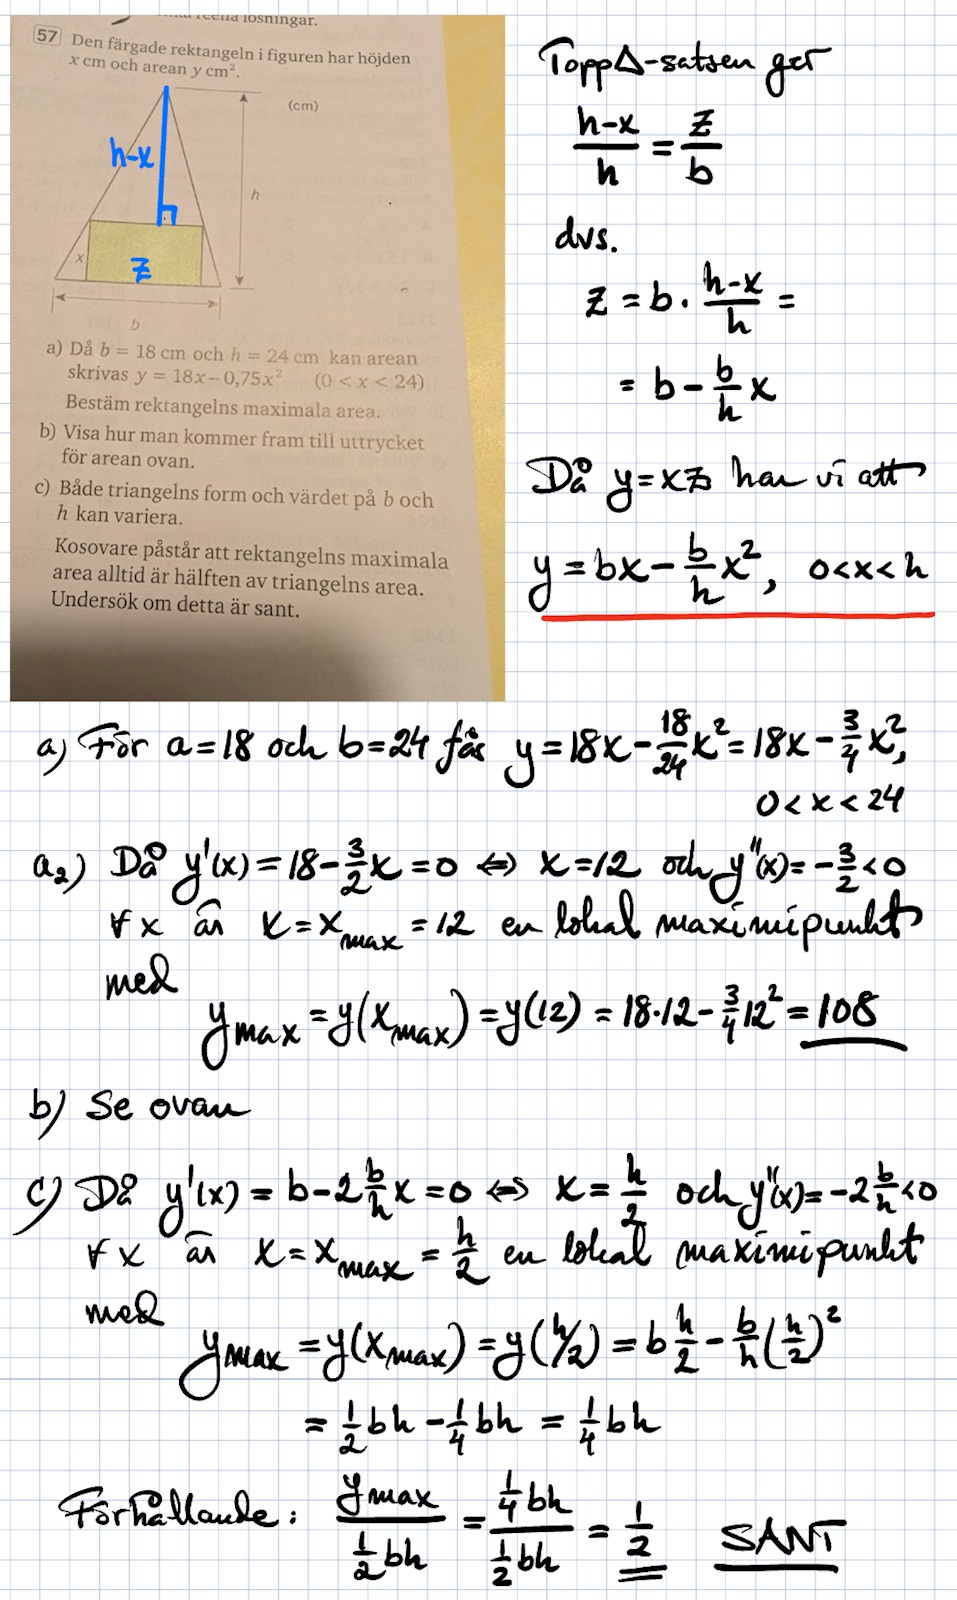 lösningar.
57 Den färgade rektangeln i figuren har höjden
x cm och arean y cm².
(cm)
h-x
h
x
z
b
a) Då b = 18 cm och h = 24 cm kan arean
skrivas y = 18x – 0,75x² (0 < x < 24)
Bestäm rektangelns maximala area.
b) Visa hur man kommer fram till uttrycket
för arean ovan.
c) Både triangelns form och värdet på b och
h kan variera.
Kosovare påstår att rektangelns maximala
area alltid är hälften av triangelns area.
Undersök om detta är sant.
Topp∆-satsen ger
(h-x)/h = z/b
dvs.
z = b · (h-x)/h =
= b - b/h x
Då y = xz har vi att
y = bx - b/h x², 0<x<h
a) För a=18 och b=24 fås y = 18x - 18/24 x² = 18x - 3/4 x²,
0 < x < 24
a₂) Då y'(x) = 18 - 3/2 x = 0 ⇔ x = 12 och y''(x) = -3/2 < 0
∀x är x = x_max = 12 en lokal maximipunkt
med
y_max = y(x_max) = y(12) = 18·12 - 3/4 12² = 108
b) Se ovan
c) Då y'(x) = b - 2 b/h x = 0 ⇔ x = h/2 och y''(x) = -2 b/h < 0
∀x är x = x_max = h/2 en lokal maximipunkt
med
y_max = y(x_max) = y(h/2) = b h/2 - b/h (h/2)²
= 1/2 bh - 1/4 bh = 1/4 bh
Förhållande: y_max/(1/2 bh) = (1/4 bh)/(1/2 bh) = 1/2 SANT